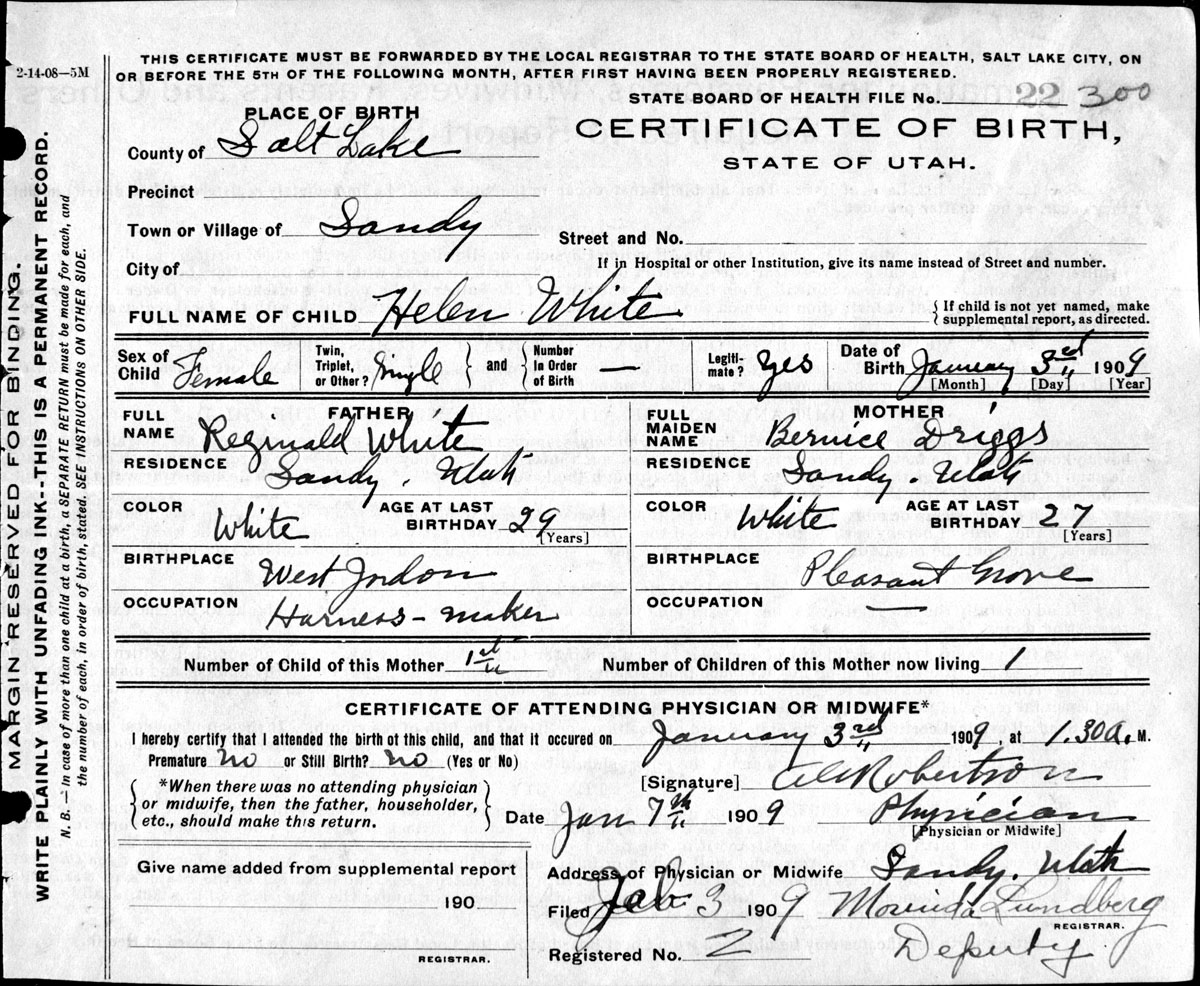 THIS CERTIFICATE MUST BE FORWARDED BY THE LOCAL REGISTRAR TO THE STATE BOARD OF HEALTH, SALT LAKE CITY, ON
2-14-08—5M OR BEFORE THE 5TH OF THE FOLLOWING MONTH, AFTER FIRST HAVING BEEN PROPERLY REGISTERED.
STATE BOARD OF HEALTH FILE No. 22 300
PLACE OF BIRTH
CERTIFICATE OF BIRTH,
County of Salt Lake
STATE OF UTAH.
Precinct
Town or Village of Sandy
Street and No.
City of
If in Hospital or other Institution, give its name instead of Street and number.
FULL NAME OF CHILD Helen White
{If child is not yet named, make supplemental report, as directed.
Sex of Child Female
Twin, Triplet, or Other? Single } and { Number in Order of Birth —
Legiti-mate? Yes
Date of Birth January 3rd 1909
[Month] [Day] [Year]
FATHER
FULL NAME Reginald White
RESIDENCE Sandy. Utah
COLOR White
AGE AT LAST BIRTHDAY 29
[Years]
BIRTHPLACE West Jordon
OCCUPATION Harness-maker
MOTHER
FULL MAIDEN NAME Bernice Driggs
RESIDENCE Sandy. Utah
COLOR White
AGE AT LAST BIRTHDAY 27
[Years]
BIRTHPLACE Pleasant Grove
OCCUPATION —
Number of Child of this Mother 1st
Number of Children of this Mother now living 1
CERTIFICATE OF ATTENDING PHYSICIAN OR MIDWIFE*
I hereby certify that I attended the birth of this child, and that it occured on January 3rd 1909, at 1.30 A. M.
Premature no or Still Birth? no (Yes or No)
[Signature] Robertson
{*When there was no attending physician
or midwife, then the father, householder,
etc., should make this return.}
Date Jan 7th 1909
Physician
[Physician or Midwife]
Give name added from supplemental report
190
REGISTRAR.
Address of Physician or Midwife Sandy. Utah
Filed Feb 3 1909 Lundberg
REGISTRAR.
Registered No. 2 Deputy
MARGIN RESERVED FOR BINDING.
WRITE PLAINLY WITH UNFADING INK--THIS IS A PERMANENT RECORD.
N. B.—In case of more than one child at a birth, a SEPARATE RETURN must be made for each, and
the number of each, in order of birth, stated. SEE INSTRUCTIONS ON OTHER SIDE.